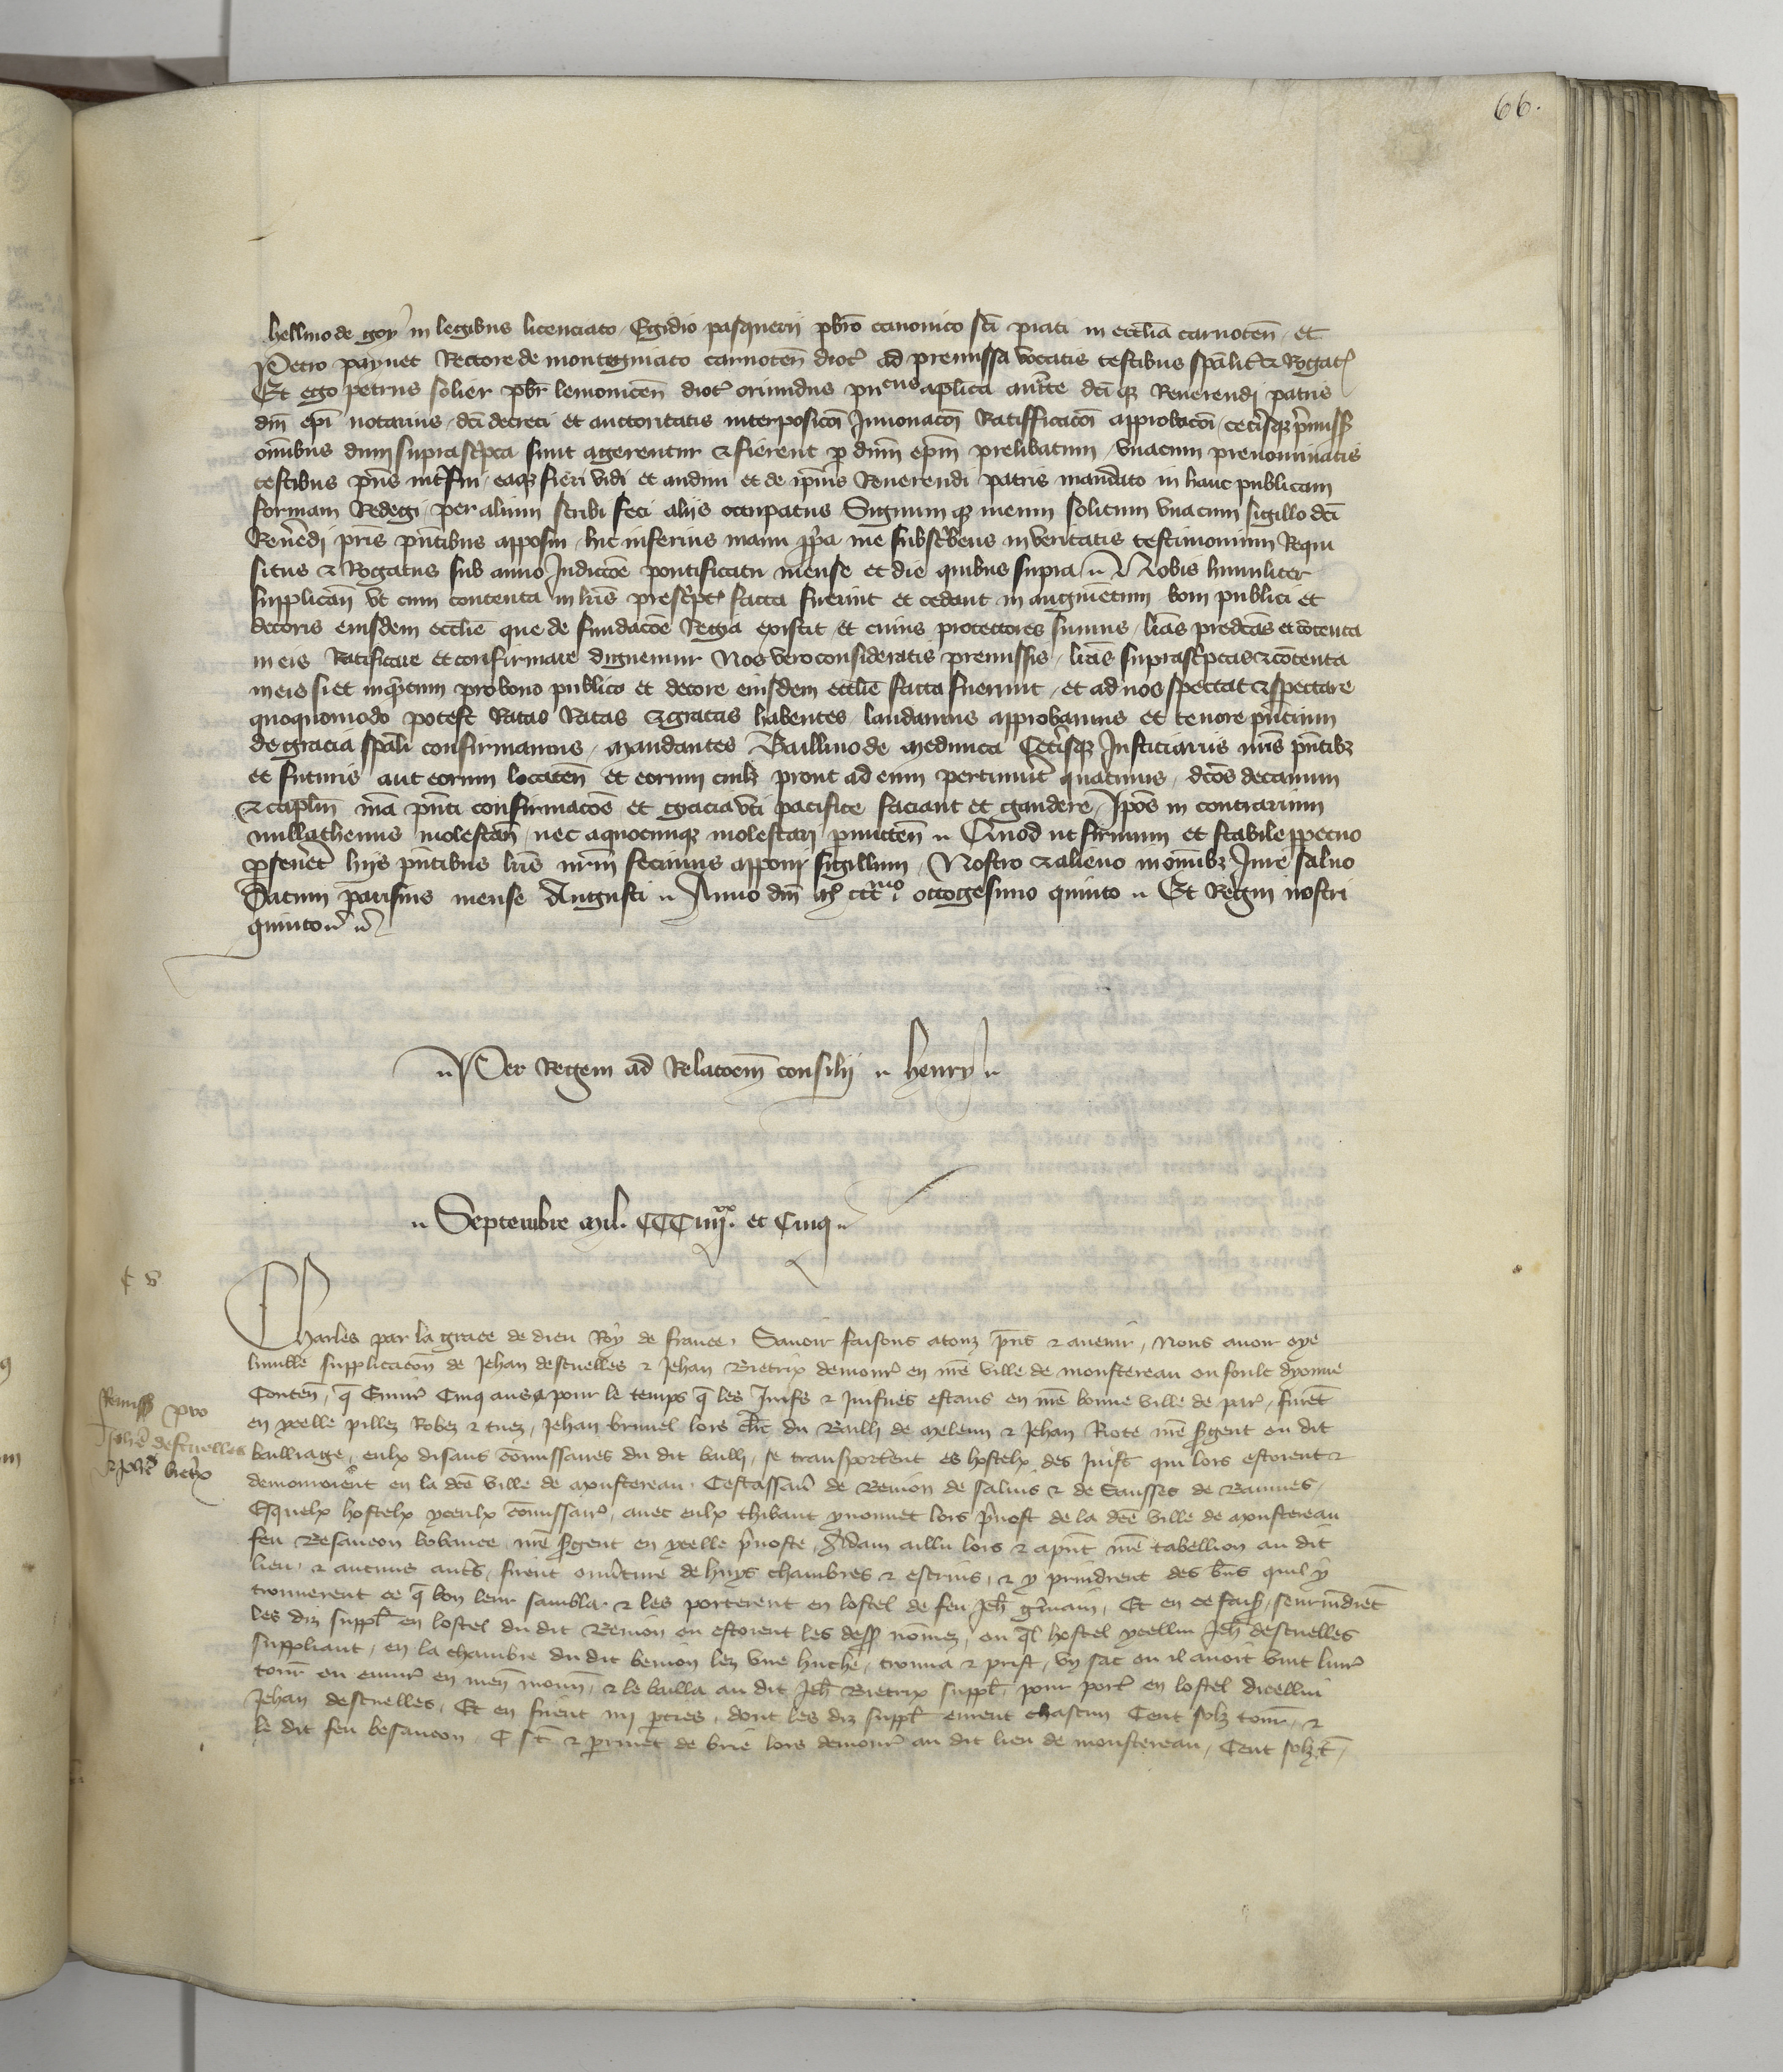 66.
hellmo de goy in legibus licenciato Egidio pasquerii pbro canonico sci piati in ecclia carnoten et
Petro paynet Rectore de monteguicato carnoten dioc ad premissa vocatis testibus spalit & Rogat
Et ego petrus solier pbr lemonicen dioc oriundus pucus aplica aucte dci q Reverendi patris
dni epi notarius dci decreti et auctoritatis interposicoi Innovacoi Ratifficacoi approbacoi cetisq pmiss
omibus dum suprascpta sunt agerentur & fierent p dnm epm prelibatum unacum prenominatis
testibus pns intfui eaq fieri vidi et audivi et de ipius Reverendi patris mandato in hanc publicam
formam Redegi per alium scribi feci aliis occupatus Signum q meum solitum unacum sigillo dci
Revedi pris pntibus apposui hic inferius manu ppa me subscbens in veritatis testimonium Requi
situs & Rogatus sub anno Indiccoe pontificatu mense et die quibus supra Nobis humiliter
supplican ut cum contenta in lris prescpt facta fuerint et cedant in augmetum boni publici et
decoris eiusdem ecclie que de fundacoe Regia existit et cuius protectores sumus lras predcas et cotenta
in eis Ratificare et confirmare dignemur Nos vero consideratis premissis lras suprascptas & cotenta
in eis si et inqtum pro bono publico et decore eiusdem ecclie facta fuerunt et ad nos spectat & spectare
quoquomodo potest Ratas Ratas & gratas habentes laudamus approbamus et tenore pntium
de gracia spali confirmamus mandantes Baillivo de medunta Cetisq Justiciariis nris pntibz
et futuris aut eorum locaten et eorum cuilz prout ad eum pertinuit quatinus dcos decanum
& caplm nra pnti confirmacoe et gracia uti pacifice faciant et gaudere Ipos in contrarium
nullathenus molestan nec a quocumq molestari pmitten Quod ut firmum et stabile ppetuo
pseveret hiis pntibus lris nrm fecimus apponi sigillum Nostro & alieno in omibz Jure salvo
Datum parisius mense Augusti Anno dni m ccc mo octogesimo quinto Et Regni nostri
quinto
Per Regem ad Relacoem consilii henry
Septembre mil. CCC iiii xx. et Cinq
C v
Charles par la grace de dieu Roy de france. Savoir faisons atouz pns & avenir, Nous avoir oye
lumble supplicacon de Jehan descuelles & Jehan Bietrix demour en nre ville de monstereau ou foult dyonne
Conten, q Envir Cinq ans a pour le temps q les Juifs & Juifves estans en nre bonne ville de par, furet
en ycelle pillez Robez & tuez, Jehan brunel lors clerc du Bailli de meleun & Jehan Riote nre sgent ou dit
Remiss pro
Jehe descuelles
& Jehe bietrx
bailliage, eulx disans comissaires du dit bailli, se transportent es hostelx des Juifs qui lors estoient &
demouroient en la dce ville de monstereau. Cestassavr de Bemon de salins & de Sausses de Baumes,
Esquelx hostelx yceulx comissair, avec eulx thibaut ynonnet lors pvost de la dce ville de monstereau
feu Besancon bobance nre sgent en ycelle pvoste, Adam aillu lors & apnt nre tabellion au dit
lieu & aucuns auts, firent ouvture de huys chambres & escrins, & y prindrent des bns quil y
trouverent ce q bon leur sambla & les porterent en lostel de feu Jeh gmain, Et en ce fais, seurvindret
les diz suppl en lostel du dit Bemon ou estoient les dess nomez, ou ql hostel ycellui Jeh descuelles
suppliant, en la chambre du dit bemon lez une huche, trouva & prist, un sac ou il avoit vint livr
tour ou envir en men monn, & le bailla au dit Jeh Bietrix suppl, pour port en lostel dicellui
Jehan descuelles, Et en firent iiii pties, dont les diz suppl eurent chascun Cent solz tour, &
le dit feu besancon C st & prinet de brie lors demour au dit lieu de monstereau, Cent solz t,